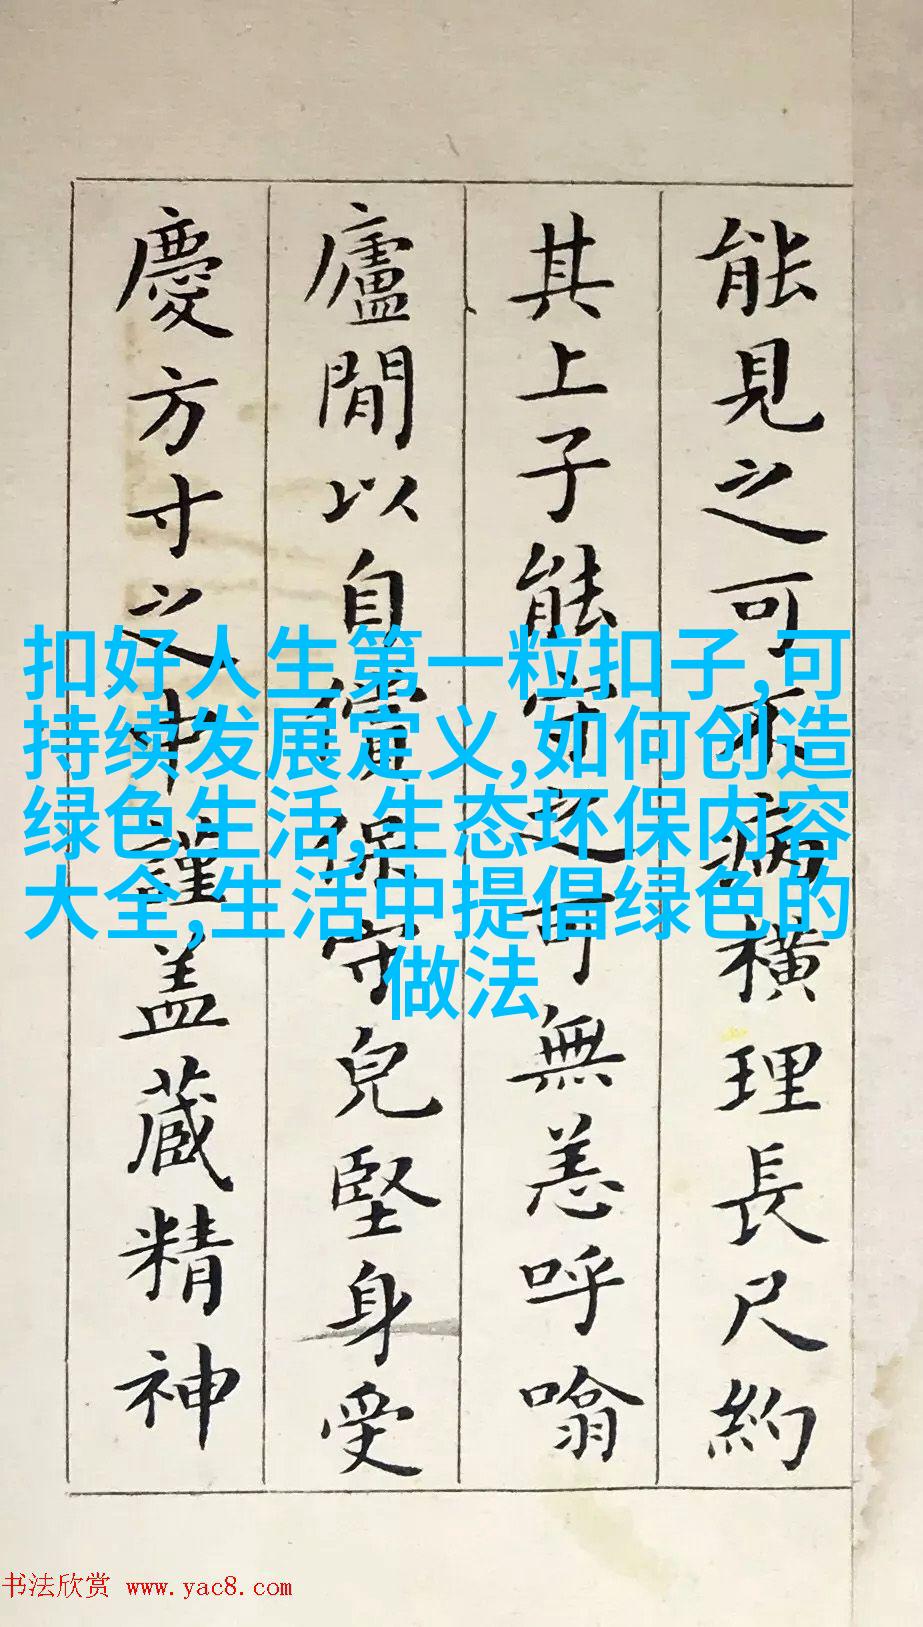 能見之可不病橫理長尺約
其上子能守之可無恙呼噏
廬閒以自償保守兒堅身受
慶方寸之中謹盖藏精神
扣好人生第一粒扣子,可
持续发展定义,如何创造
绿色生活,生态环保内容
大全,生活中提倡绿色的
做法
书法欣赏 www.yac8.com